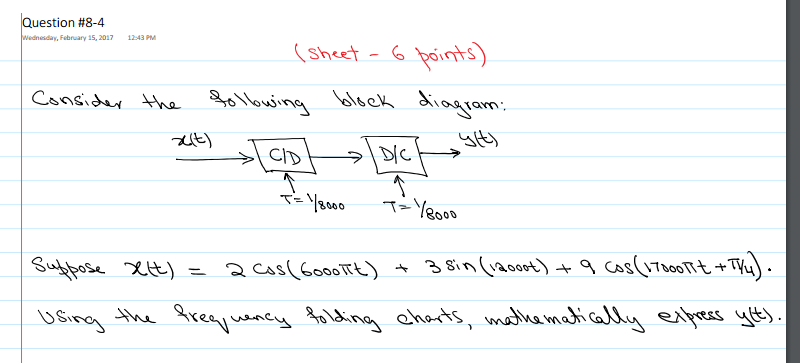 Question #8-4
Wednesday, February 15, 2017 12:43 PM
(Sheet - 6 points)
Consider the following block diagram:
x(t) C/D D/C y(t)
T = 1/8000 T = 1/8000
Suppose x(t) = 2 cos(6000πt) + 3 sin(12000t) + 9 cos(17000πt + π/4).
Using the frequency folding charts, mathematically express y(t).